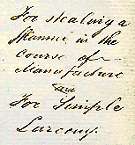 For stealing a
Hammer in the
course of
Manufacture
and
For Simple
Larceny.